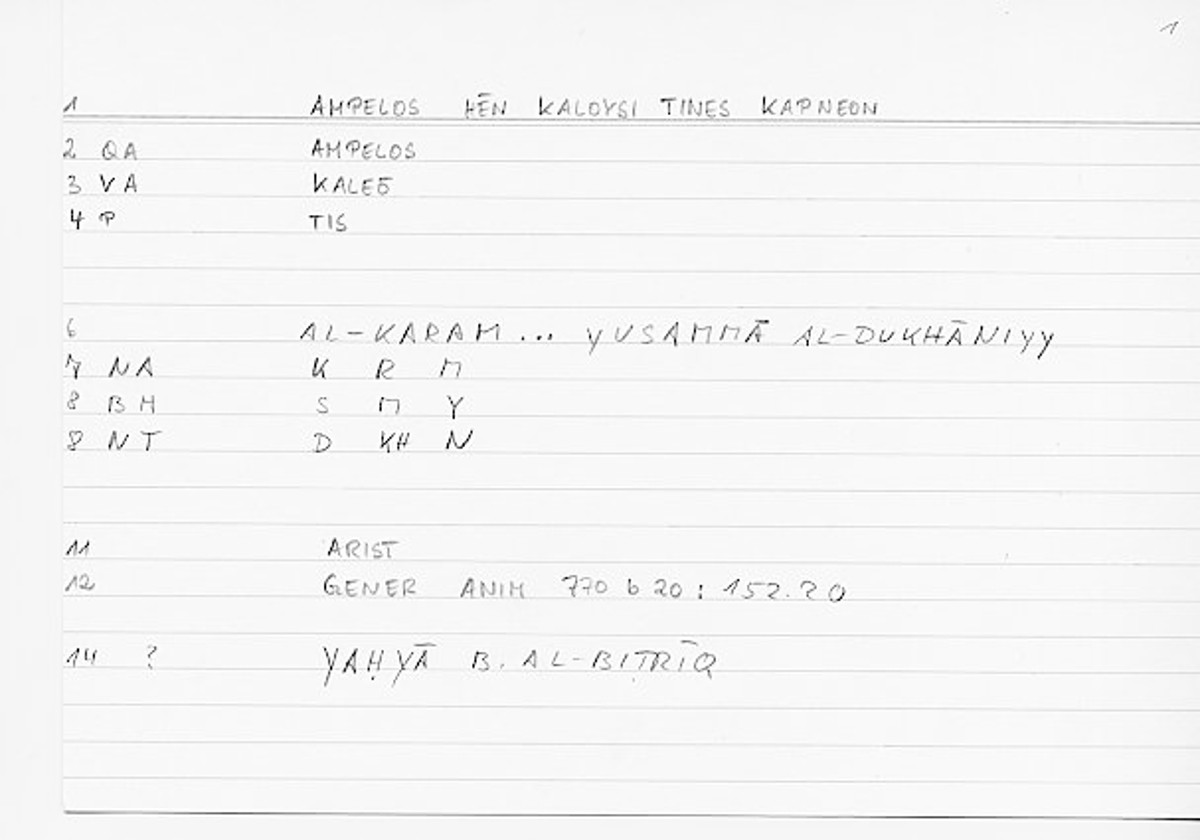 1
1 AMPELOS HĒN KALOYSI TINES KAPNEON
2 QA AMPELOS
3 VA KALEŌ
4 P TIS
6 AL-KARAM... YUSAMMĀ AL-DUKHĀNIYY
7 NA K R M
8 BH S M Y
8 NT D KH N
11 ARIST
12 GENER ANIM 770 b 20 : 152.20
14 ? YAḤYĀ B. AL-BIṬRĪQ